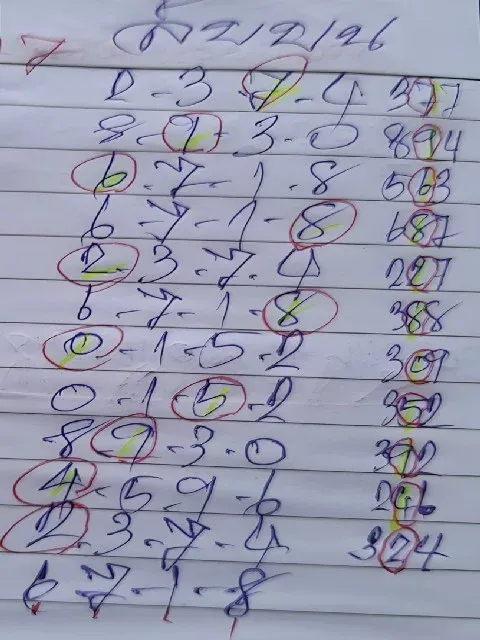 2/2/26
2-3-7-4 377
8-9-3-0 894
6-7-1-8 563
6-7-1-8 687
2-3-7-4 227
6-7-1-8 388
0-1-5-2 309
0-1-5-2 352
8-9-3-0 392
4-5-9-6 246
2-3-7-4 324
6-7-1-8